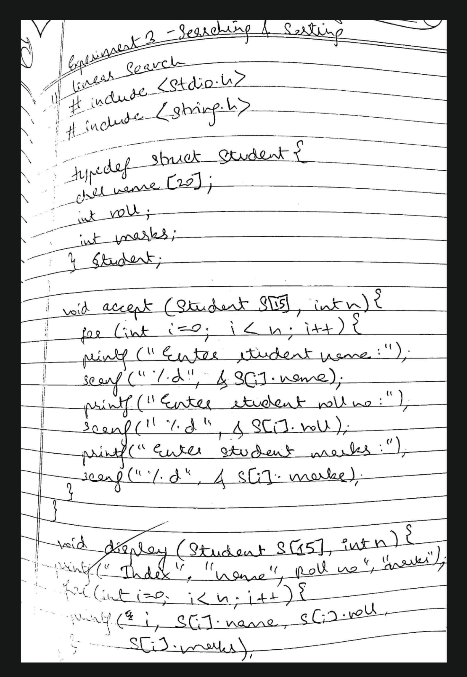 Experiment 3 - Searching & Sorting
Linear Search
# include <stdio.h>
# include <string.h>
typedef struct Student {
char name [20];
int roll;
int marks;
} Student;
void accept (Student S[15], int n) {
for (int i=0; i < n; i++) {
printf ("Enter student name :");
scanf ("%d", & S[i].name);
printf ("Enter student roll no :");
scanf ("%d", & S[i].roll);
printf ("Enter student marks :");
scanf ("%d", & S[i].marks);
}
}
void display (Student S[15], int n) {
printf (" Index", "name", roll no", "marks");
for (int i=0; i < n; i++) {
printf ( i, S[i].name, S[i].roll,
S[i].marks);